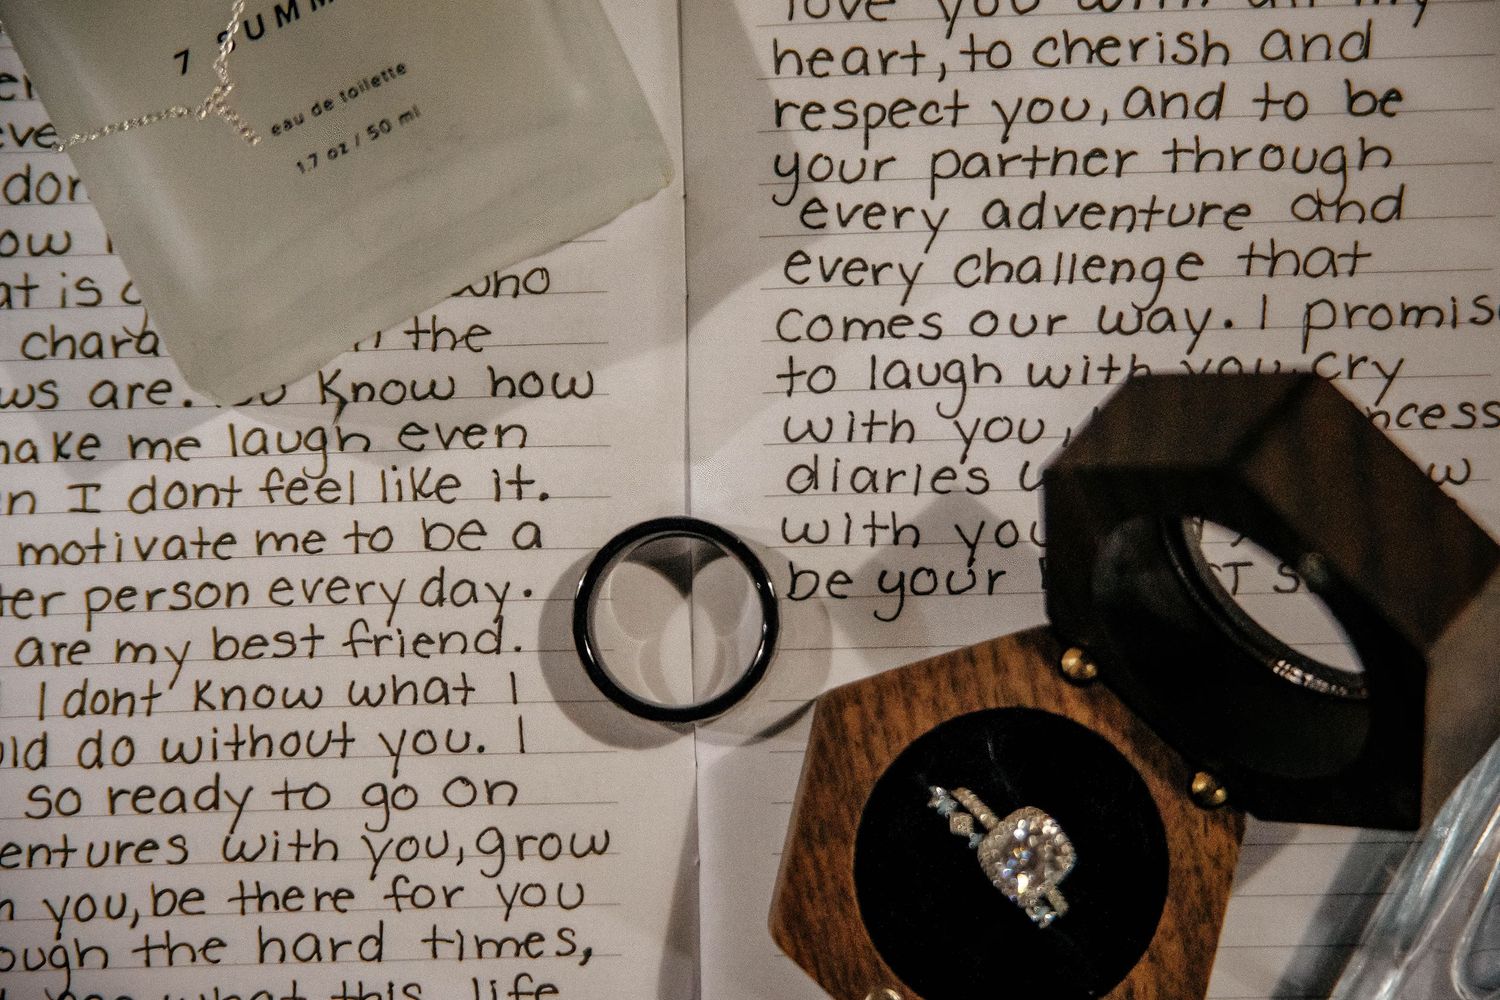 7 SUMM
eau de toilette
1.7 oz / 50 ml
who
the
are. know how
make me laugh even
I dont feel like it.
motivate me to be a
person every day.
are my best friend.
I dont know what I
do without you. I
so ready to go on
with you, grow
you, be there for you
the hard times,
what this life
love you with all my
heart, to cherish and
respect you, and to be
your partner through
every adventure and
every challenge that
comes our way. I promis
to laugh with you, cry
with you,
diaries
with you
be your